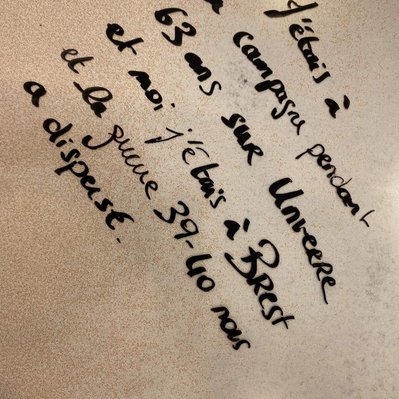 j'étais à
campagne pendant
63 ans sur
et moi j'étais à Brest
et la guerre 39-40 nous
a dispersé.